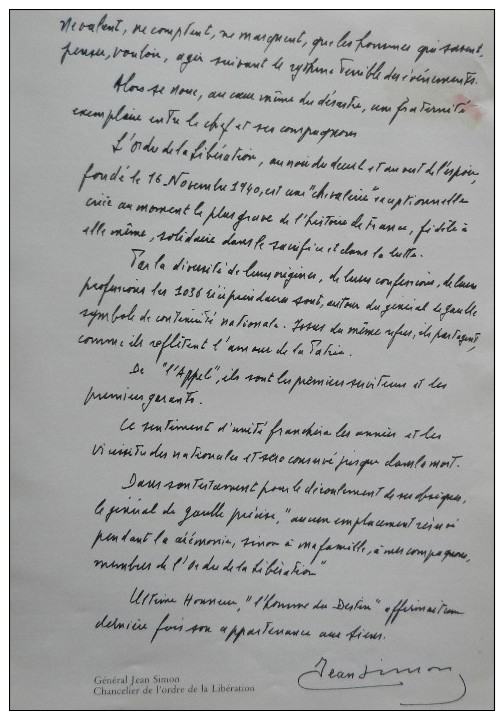 ne valent, ne comptent, ne marquent, que les hommes qui savent
penser, vouloir, agir suivant le rythme terrible des événements.
Alors se noue, au cœur même du désastre, une fraternité
exemplaire entre le chef et ses compagnons
L'Ordre de la Libération, au noir du deuil et au vert de l'espoir,
fondé le 16 Novembre 1940, est une "chevalerie" exceptionnelle
créée au moment le plus grave de l'histoire de France, fidèle à
elle même, solidaire dans le sacrifice et dans la lutte.
Par la diversité de leurs origines, de leurs confessions, de leurs
professions les 1036 récipiendaires sont, autour du général de gaulle
symbole de continuité nationale. Issus du même refus, ils partagent,
comme ils reflètent l'amour de la Patrie.
De "l'Appel", ils sont les premiers serviteurs et les
premiers garants.
Ce sentiment d'unité franchira les années et les
vicissitudes nationales et sera conservé jusque dans la mort.
Dans son testament pour le déroulement de ses obsèques,
le général de gaulle précise, "aucun emplacement réservé
pendant la cérémonie, sinon à ma famille, à mes compagnons,
membres de l'Ordre de la Libération"
Ultime Honneur, "l'homme du Destin" affirmait une
dernière fois son appartenance aux siens.
Jean Simon
Général Jean Simon
Chancelier de l'ordre de la Libération